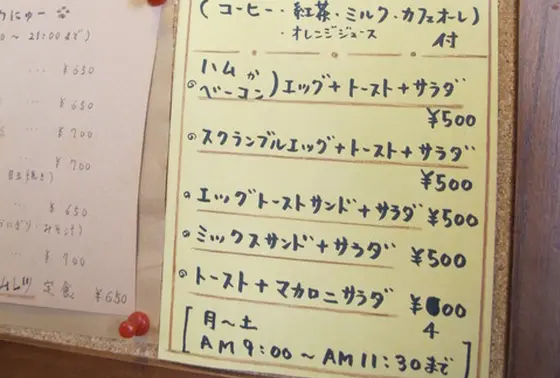 うにゅー
~ 21:00まで)
… ¥650
… ¥650
… ¥700
… ¥700
… ¥650
¥700
定食 ¥650
(コーヒー・紅茶・ミルク・カフェオーレ)
・オレンジジュース 付
ハムか
ベーコン)エッグ+トースト+サラダ
¥500
スクランブルエッグ+トースト+サラダ
¥500
エッグトーストサンド+サラダ ¥500
ミックスサンド+サラダ ¥500
トースト+マカロニサラダ ¥400
月~土
AM9:00~AM11:30まで